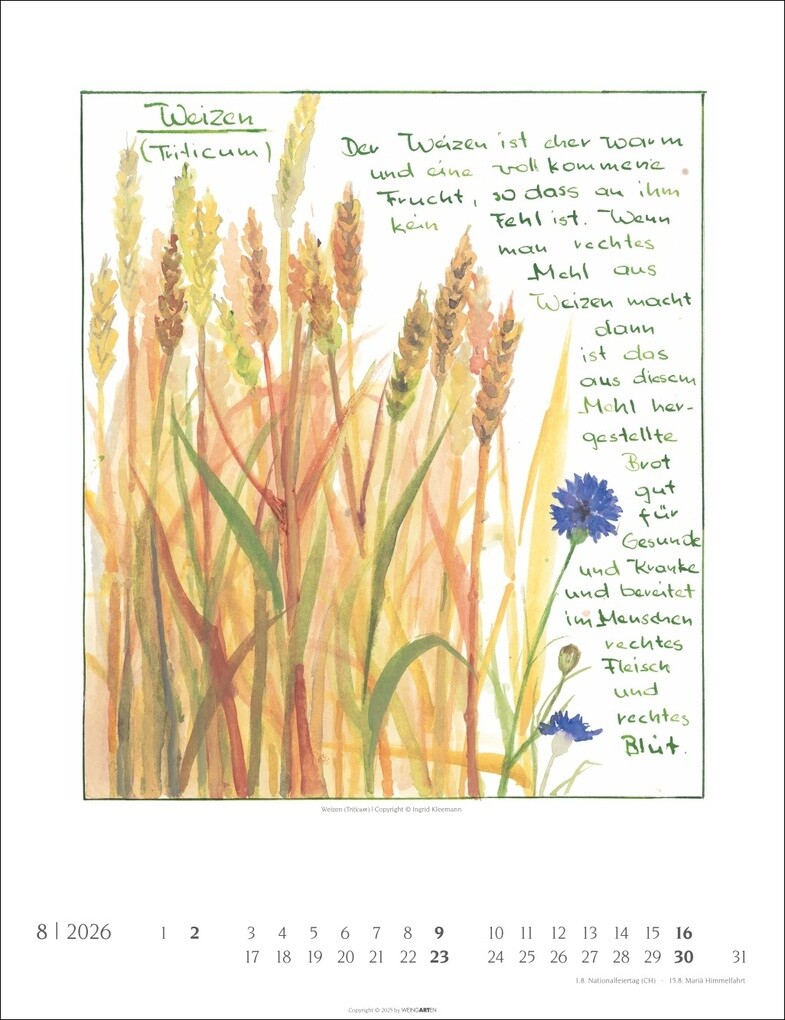 Weizen
(Triticum)
Der Weizen ist eher warm
und eine vollkommene
Frucht, so dass an ihm
kein Fehl ist. Wenn
man rechtes
Mehl aus
Weizen macht
dann
ist das
aus diesem
Mehl her-
gestellte
Brot
gut
für
Gesunde
und Kranke
und bereitet
im Menschen
rechtes
Fleisch
und
rechtes
Blut.
Weizen (Triticum) | Copyright © Ingrid Kleemann
8 | 2026 1 2 3 4 5 6 7 8 9 10 11 12 13 14 15 16
17 18 19 20 21 22 23 24 25 26 27 28 29 30 31
1.8. Nationalfeiertag (CH) · 15.8. Mariä Himmelfahrt
Copyright © 2025 by WEINGARTEN